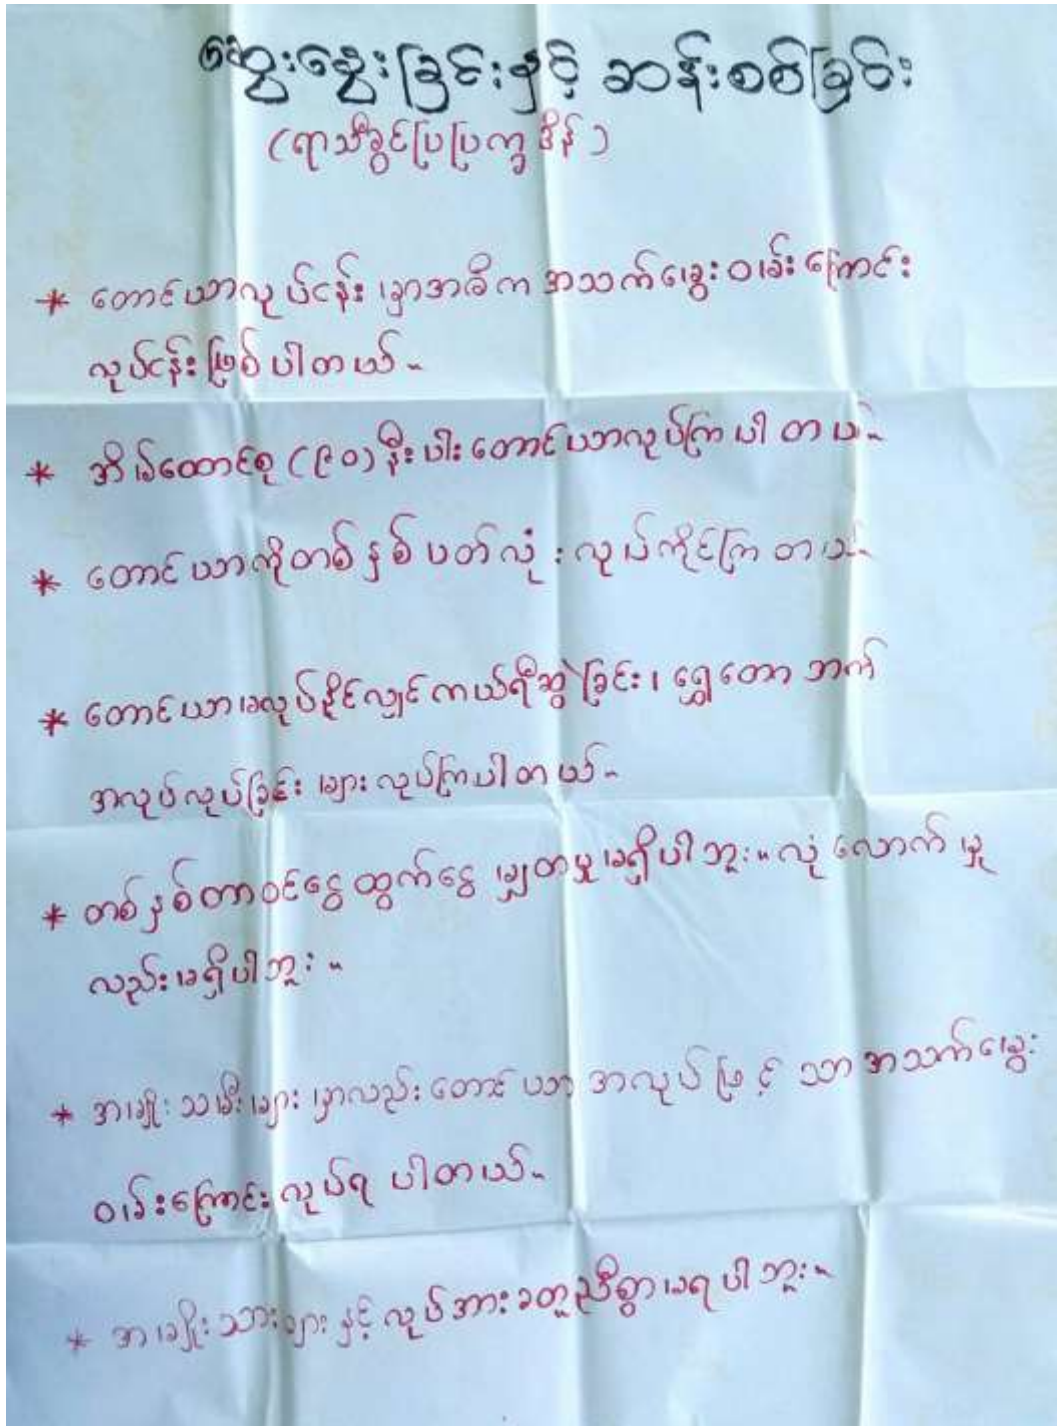 ဆွေးနွေးခြင်းနှင့် ဆန်းစစ်ခြင်း
(ရာသီခွင်ပြပြက္ခဒိန်)
* တောင်ယာလုပ်ငန်း မှာအဓိက အသက်မွေး ဝမ်း ကြောင်း
လုပ်ငန်း ဖြစ် ပါတယ်။
* အိမ်ထောင်စု (၉၀) နီးပါး တောင်ယာလုပ်ကြ ပါ တယ်။
* တောင်ယာကိုတစ်နှစ် ပတ်လုံး လုပ်ကိုင်ကြ တယ်
* တောင်ယာမလုပ်နိုင်လျှင် ကယ်ရီဆွဲ ခြင်း၊ ရွှေတော ဘက်
အလုပ်လုပ်ခြင်း များ လုပ်ကြပါတယ်။
* တစ်နှစ်တာဝင်ငွေ ထွက်ငွေ မျှတမှု မရှိပါ ဘူး။ လုံ လောက် မှု
လည်း မရှိပါ ဘူး ။
* အမျိုး သမီးများ မှာလည်း တောင် ယာ အလုပ် ဖြ င့် သာ အသက်မွေး
ဝမ်းကြောင်း လုပ်ရ ပါတယ်။
* အမျိုး သားများ နှင့် လုပ်အားခတူညီစွာ မရ ပါ ဘူး။